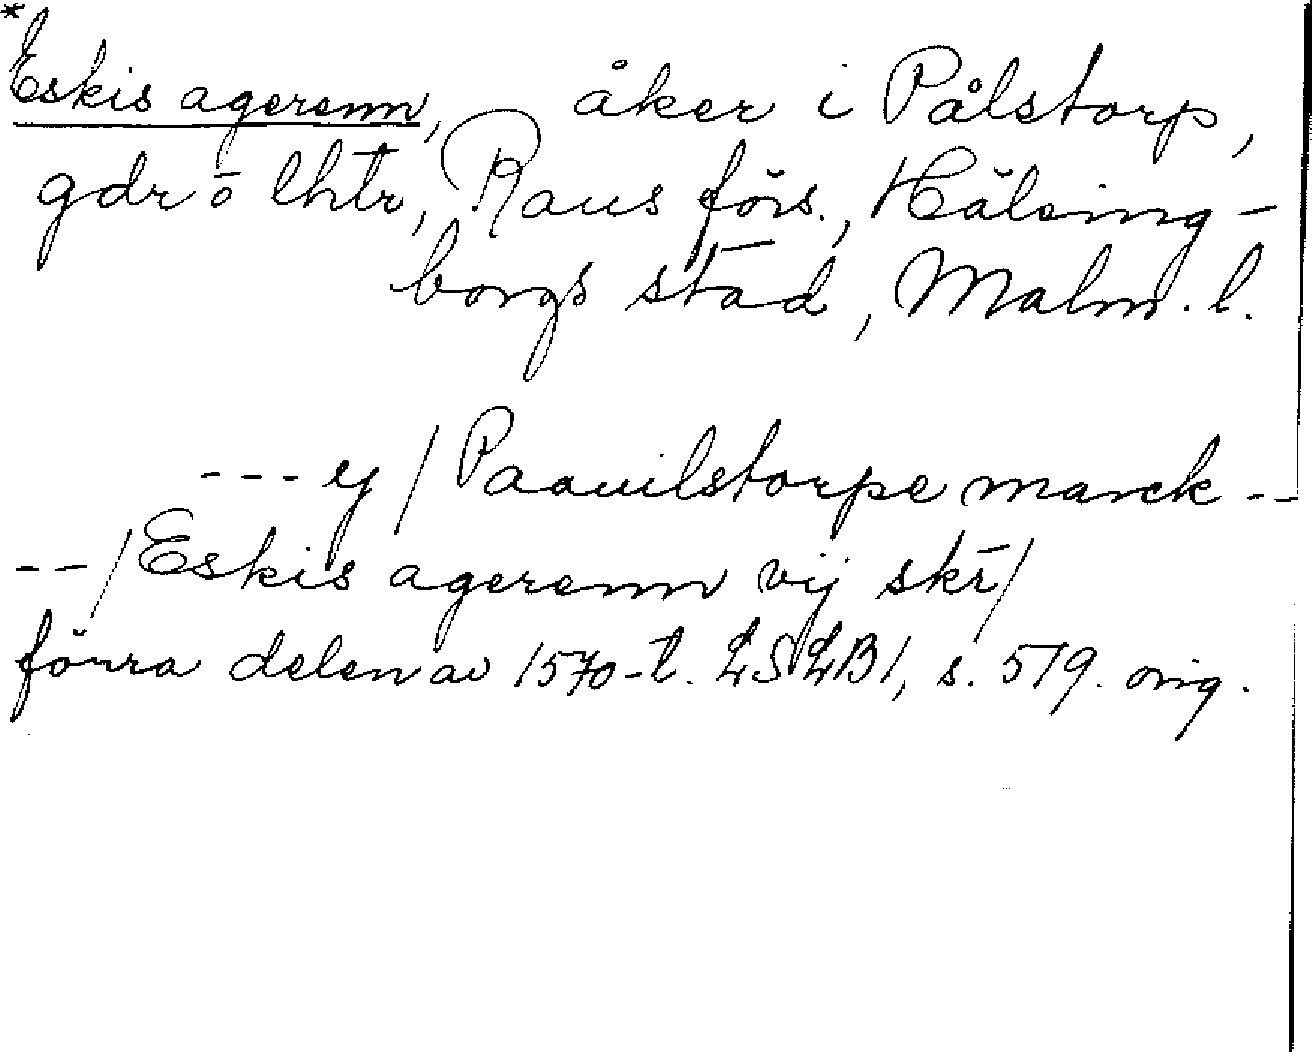 *Eskis agerenn, åker i Pålstorp,
gdr o lhtr, Raus förs., Hälsing-
borgs stad, Malm. l.
--- y / Paauilstorpe marck --
--/Eskis agerenn vij skr/
förra delen av 1570-t. LSLB1, s. 519. orig.